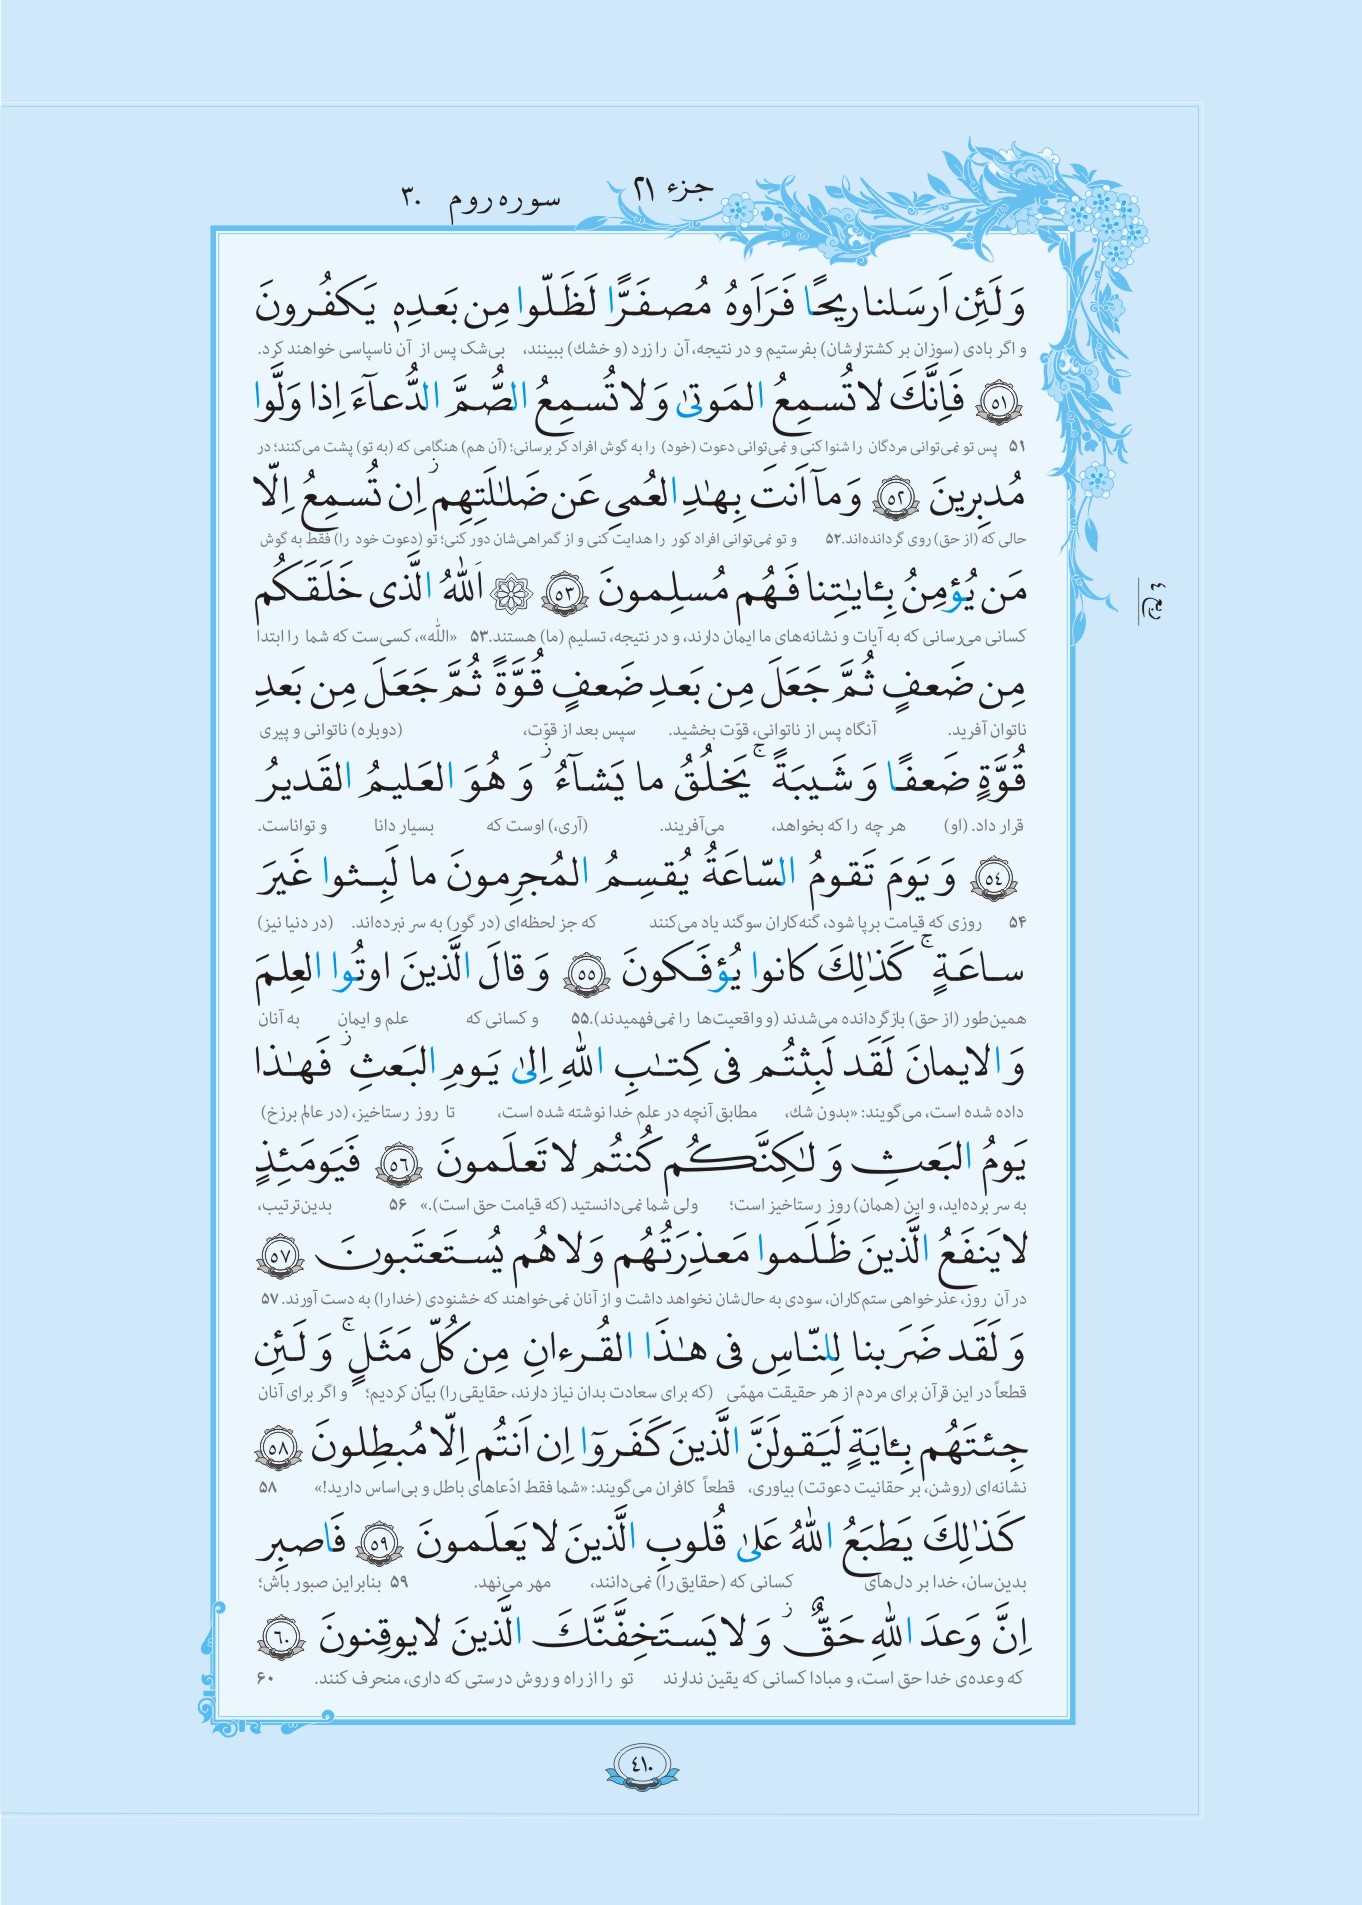 جزء ٢١
سوره روم ٣٠
وَ لَئِن اَرسَلنا ريحًا فَرَاَوهُ مُصفَرًّا لَظَلّوا مِن بَعدِهٖ يَكفُرونَ
و اگر بادی (سوزان بر کشتزارشان) بفرستیم و در نتیجه، آن را زرد (و خشك) ببینند، بی‌شک پس از آن ناسپاسی خواهند کرد.
﴿٥١﴾ فَاِنَّكَ لا تُسمِعُ المَوتىٰ وَ لا تُسمِعُ الصُّمَّ الدُّعآءَ اِذا وَلَّوا
۵۱ پس تو نمی‌توانی مردگان را شنوا کنی و نمی‌توانی دعوت (خود) را به گوش افراد کر برسانی؛ (آن هم) هنگامی که (به تو) پشت می‌کنند؛ در
مُدبِرينَ ﴿٥٢﴾ وَ مآ اَنتَ بِهٰدِ العُمىِ عَن ضَلٰلَتِهِم ۖ اِن تُسمِعُ اِلّا
حالی که (از حق) روی گردانده‌اند. ۵۲ و تو نمی‌توانی افراد کور را هدایت کنی و از گمراهی‌شان دور کنی؛ تو (دعوت خود را) فقط به گوش
مَن يُؤمِنُ بِـٔايٰتِنا فَهُم مُسلِمونَ ﴿٥٣﴾ ۞ اَللّٰهُ الَّذى خَلَقَكُم
کسانی می‌رسانی که به آیات و نشانه‌های ما ایمان دارند، و در نتیجه، تسلیم (ما) هستند. ۵۳ «الله»، کسی‌ست که شما را ابتدا
ربع ٤
مِن ضَعفٍ ثُمَّ جَعَلَ مِن بَعدِ ضَعفٍ قُوَّةً ثُمَّ جَعَلَ مِن بَعدِ
ناتوان آفرید. آنگاه پس از ناتوانی، قوّت بخشید. سپس بعد از قوّت، (دوباره) ناتوانی و پیری
قُوَّةٍ ضَعفًا وَ شَيبَةً ۚ يَخلُقُ ما يَشآءُ ۖ وَ هُوَ العَليمُ القَديرُ
قرار داد. (او) هر چه را که بخواهد، می‌آفریند. (آری،) اوست که بسیار دانا و تواناست.
﴿٥٤﴾ وَ يَومَ تَقومُ السّاعَةُ يُقسِمُ المُجرِمونَ ما لَبِثوا غَيرَ
۵۴ روزی که قیامت برپا شود، گنه‌کاران سوگند یاد می‌کنند که جز لحظه‌ای (در گور) به سر نبرده‌اند. (در دنیا نیز)
ساعَةٍ ۚ كَذٰلِكَ كانوا يُؤفَكونَ ﴿٥٥﴾ وَ قالَ الَّذينَ اوتُوا العِلمَ
همین‌طور (از حق) بازگردانده می‌شدند (و واقعیت‌ها را نمی‌فهمیدند). ۵۵ و کسانی که علم و ایمان به آنان
وَ الايمانَ لَقَد لَبِثتُم فى كِتٰبِ اللّٰهِ اِلىٰ يَومِ البَعثِ ۖ فَهٰذا
داده شده است، می‌گویند: «بدون شك، مطابق آنچه در علم خدا نوشته شده است، تا روز رستاخیز، (در عالم برزخ)
يَومُ البَعثِ وَ لٰكِنَّكُم كُنتُم لا تَعلَمونَ ﴿٥٦﴾ فَيَومَئِذٍ
به سر برده‌اید، و این (همان) روز رستاخیز است؛ ولی شما نمی‌دانستید (که قیامت حق است).» ۵۶ بدین‌ترتیب،
لا يَنفَعُ الَّذينَ ظَلَموا مَعذِرَتُهُم وَ لا هُم يُستَعتَبونَ ﴿٥٧﴾
در آن روز، عذرخواهی ستم‌کاران، سودی به حال‌شان نخواهد داشت و از آنان نمی‌خواهند که خشنودی (خدا را) به دست آورند. ۵۷
وَ لَقَد ضَرَبنا لِلنّاسِ فى هٰذَا القُرءانِ مِن كُلِّ مَثَلٍ ۚ وَ لَئِن
قطعاً در این قرآن برای مردم از هر حقیقت مهمّی (که برای سعادت بدان نیاز دارند، حقایقی را) بیان کردیم؛ و اگر برای آنان
جِئتَهُم بِـٔايَةٍ لَيَقولَنَّ الَّذينَ كَفَروٓا اِن اَنتُم اِلّا مُبطِلونَ ﴿٥٨﴾
نشانه‌ای (روشن، بر حقانیت دعوتت) بیاوری، قطعاً کافران می‌گویند: «شما فقط ادّعاهای باطل و بی‌اساس دارید!» ۵۸
كَذٰلِكَ يَطبَعُ اللّٰهُ عَلىٰ قُلوبِ الَّذينَ لا يَعلَمونَ ﴿٥٩﴾ فَاصبِر
بدین‌سان، خدا بر دل‌های کسانی که (حقایق را) نمی‌دانند، مهر می‌نهد. ۵۹ بنابراین صبور باش؛
اِنَّ وَعدَ اللّٰهِ حَقٌّ ۖ وَ لا يَستَخِفَّنَّكَ الَّذينَ لا يوقِنونَ ﴿٦٠﴾
که وعده‌ی خدا حق است، و مبادا کسانی که یقین ندارند تو را از راه و روش درستی که داری، منحرف کنند. ۶۰
٤١٠